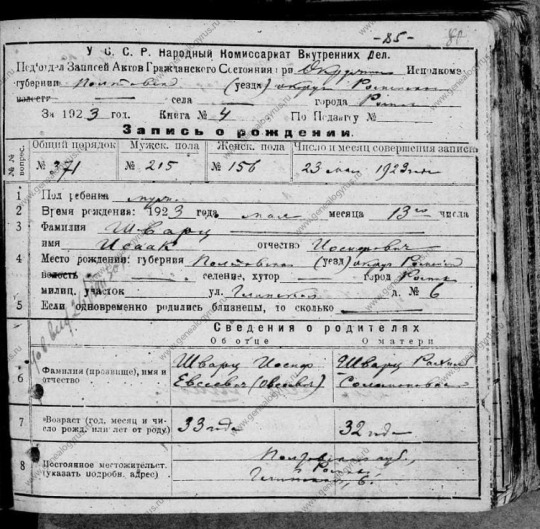 -85-
У С. С. Р. Народный Комиссариат Внутренних Дел.
Под'отдел Записей Актов Гражданского Состояния при Исполкоме
губернии Полтавской (уезда) округ Роменской
волости села города Ромны
За 1923 год. Книга № 4 По Подзагу №
Запись о рождении.
№№ вопрос. Общий порядок Мужск. пола Женск. пола Число и месяц совершения записи
№ 371 № 215 № 156 23 мая 1923 года
1 Пол ребенка мужс.
2 Время рождения: 1923 года мая месяца 13го числа
3 Фамилия Шварц
имя Исаак отчество Иосифович
4 Место рождения: губерния Полтавская (уезд) округ Роменский
волость селение, хутор город Ромны
милиц. участок ул. Глинская д. № 6
5 Если одновременно родились близнецы, то сколько
Сведения о родителях
Об отце О матери
6 Фамилия (прозвище), имя и отчество Шварц Иосиф Евсеевич Шварц
7 Возраст (год, месяц и число рожд. или лет от роду) 33 года 32 года
8 Постоянное местожительст. (указать подробн. адрес) Полтавская губ, г. Ромны Глинская, 6.
www.genealogyrus.ru